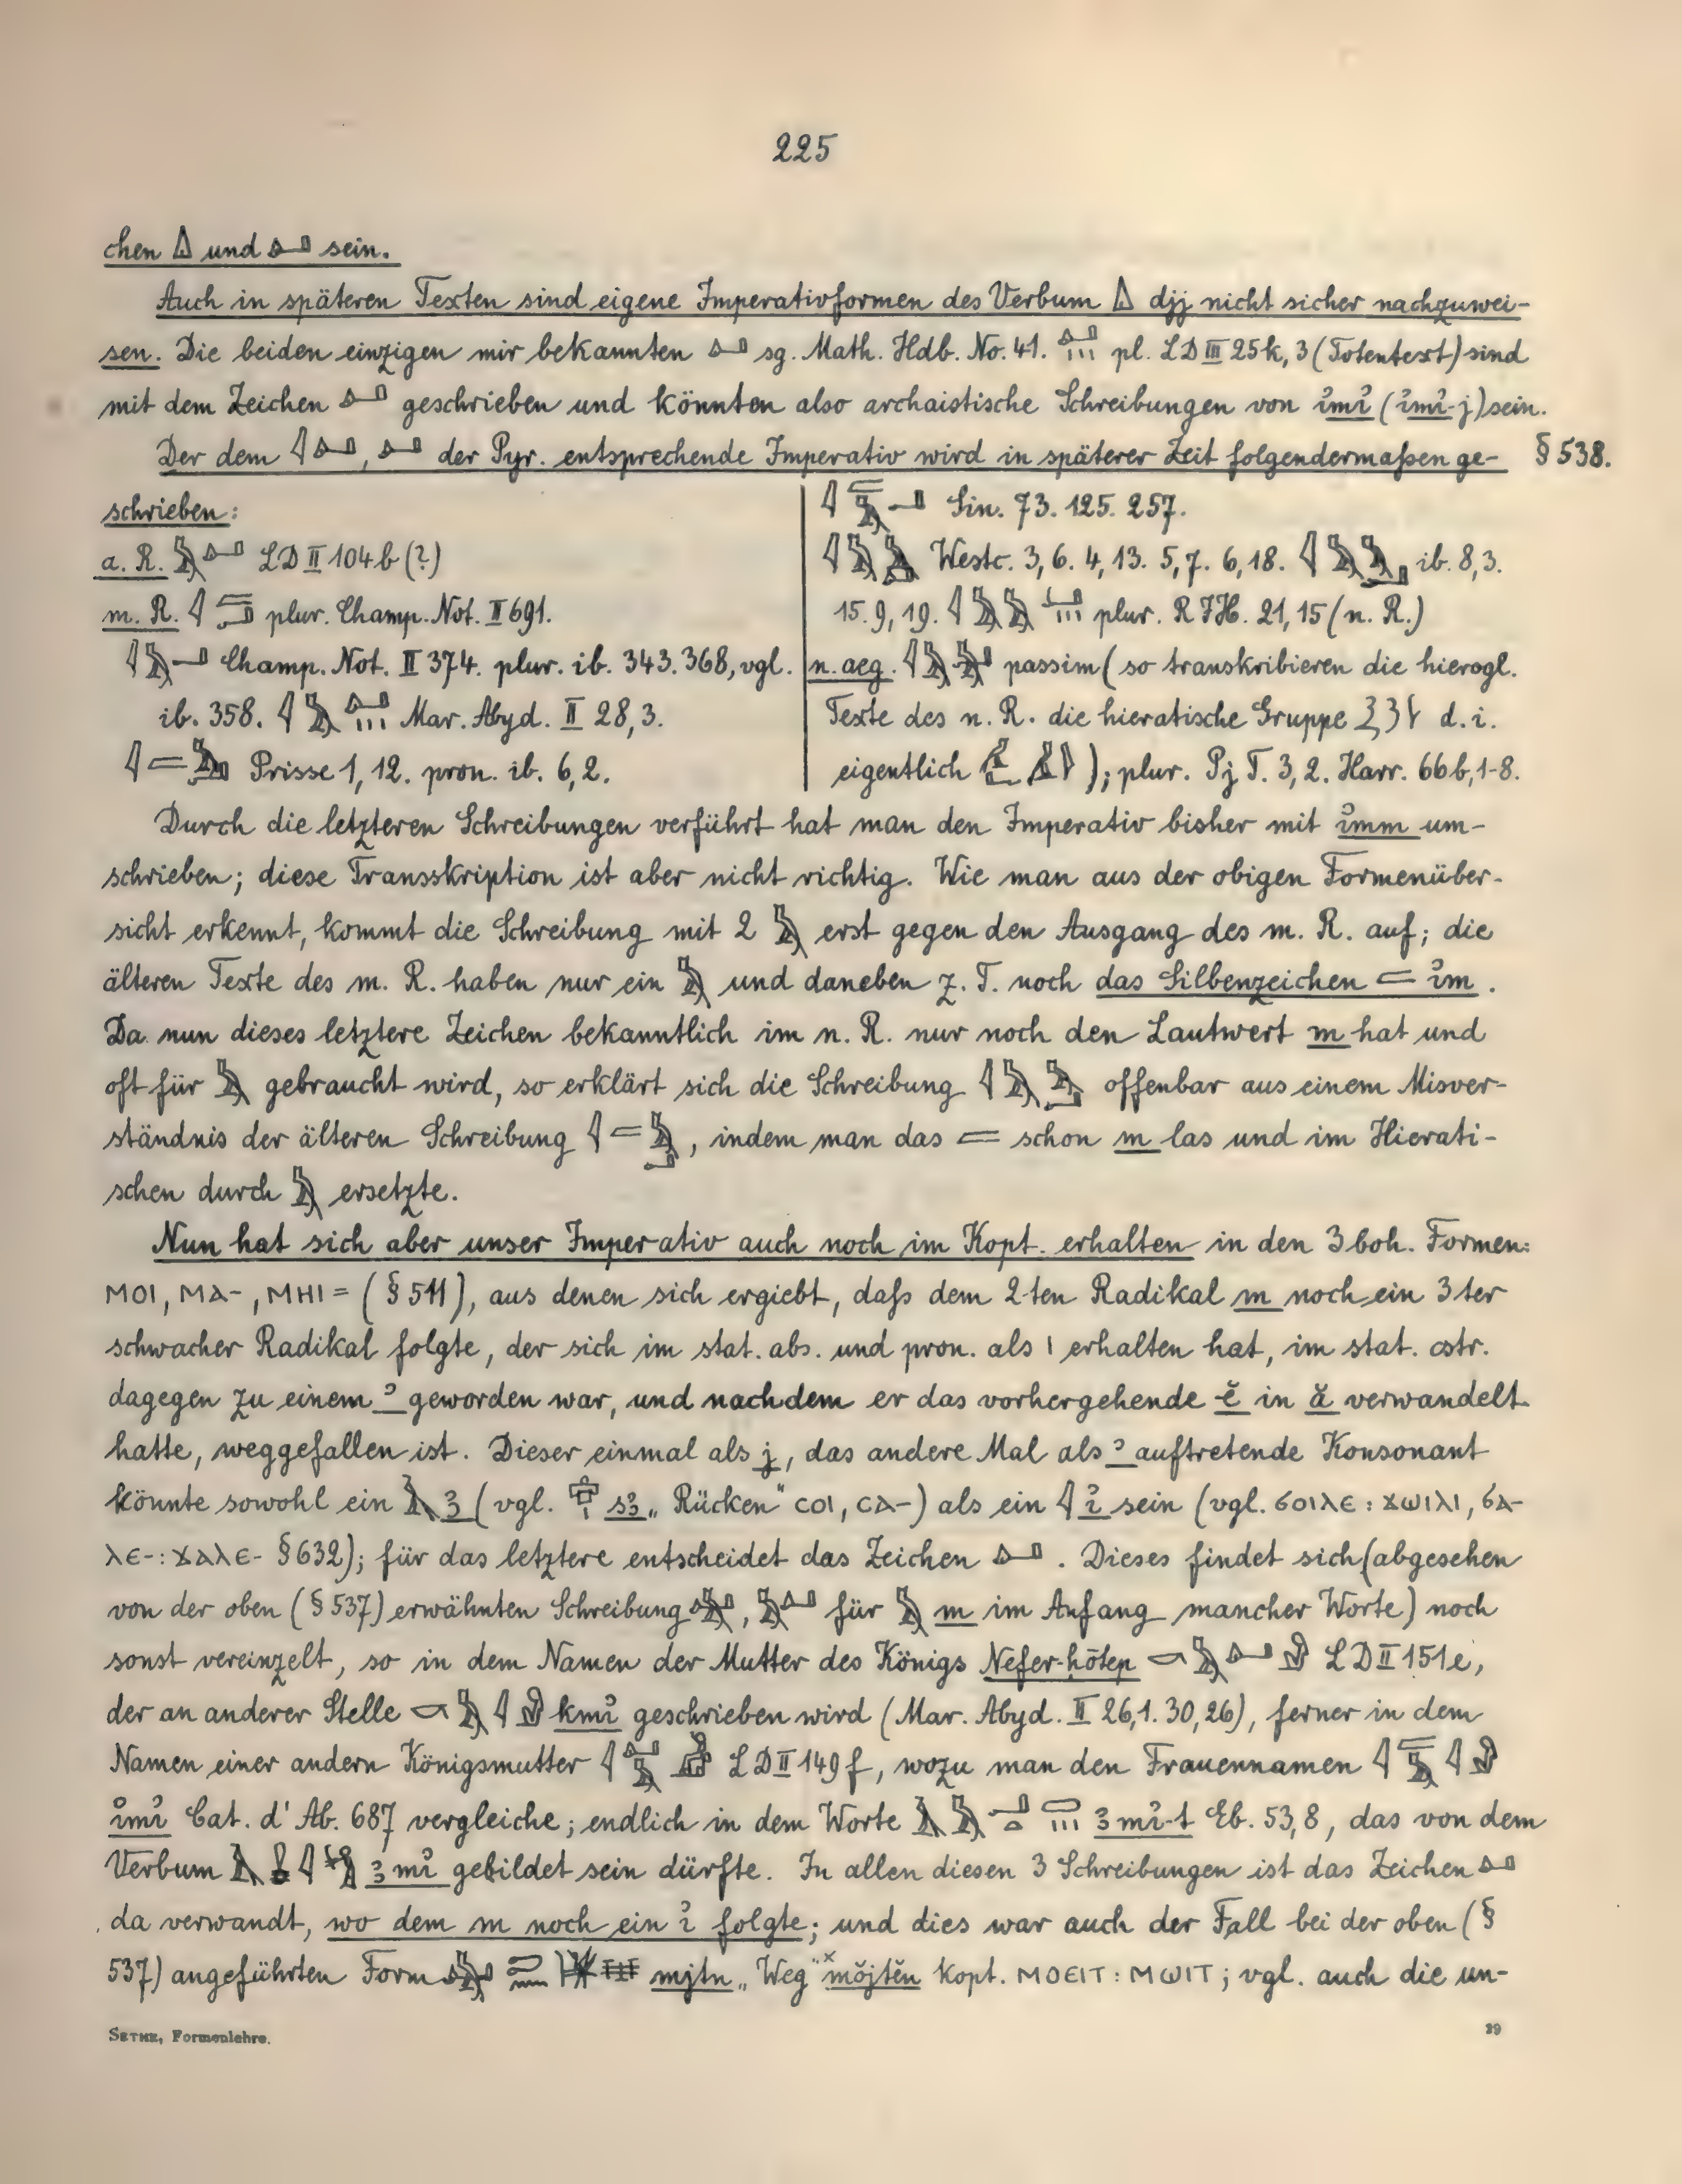 225
chen 𓏙 und 𓂞 sein.
Auch in späteren Texten sind eigene Imperativformen des Verbum 𓏙 djj nicht sicher nachzuwei-
sen. Die beiden einzigen mir bekannten 𓂞 sg. Math. Hdb. No. 41. 𓂞𓏥 pl. LD III 25k, 3 (Totentext) sind
mit dem Zeichen 𓂞 geschrieben und könnten also archaistische Schreibungen von i͗mi͗ (i͗mi͗-j) sein.
Der dem 𓇋𓂞, 𓂞 der Pyr. entsprechende Imperativ wird in späterer Zeit folgendermaßen ge- § 538.
schrieben:
a. R. 𓅓𓂞 LD II 104b (?)
m. R. plur. Champ. Not. II 691.
Champ. Not. II 374. plur. ib. 343. 368, vgl.
ib. 358. 𓇋𓅓𓂞𓏥 Mar. Abyd. II 28,3.
Prisse 1, 12. pron. ib. 6, 2.
Sin. 73. 125. 257.
Westc. 3, 6. 4, 13. 5, 7. 6, 18. ib. 8, 3.
15. 9, 19. plur. RIH. 21, 15 (n. R.)
n. aeg. passim (so transkribieren die hierogl.
Texte des n. R. die hieratische Gruppe d. i.
eigentlich ); plur. Pj T. 3, 2. Harr. 66b, 1-8.
Durch die letzteren Schreibungen verführt hat man den Imperativ bisher mit i͗mm um-
schrieben; diese Transskription ist aber nicht richtig. Wie man aus der obigen Formenüber-
sicht erkennt, kommt die Schreibung mit 2 𓅓 erst gegen den Ausgang des m. R. auf; die
älteren Texte des m. R. haben nur ein 𓅓 und daneben z. T. noch das Silbenzeichen 𓐛 i͗m.
Da nun dieses letztere Zeichen bekanntlich im n. R. nur noch den Lautwert m hat und
oft für 𓅓 gebraucht wird, so erklärt sich die Schreibung 𓇋𓅓𓅓𓂝 offenbar aus einem Misver-
ständnis der älteren Schreibung 𓇋𓐛𓅓𓂝, indem man das 𓐛 schon m las und im Hierati-
schen durch 𓅓 ersetzte.
Nun hat sich aber unser Imperativ auch noch im Kopt. erhalten in den 3 boh. Formen:
ⲙⲟⲓ, ⲙⲁ-, ⲙⲏⲓ= (§ 511), aus denen sich ergiebt, daß dem 2ten Radikal m noch ein 3ter
schwacher Radikal folgte, der sich im stat. abs. und pron. als ⲓ erhalten hat, im stat. cstr.
dagegen zu einem ʾ geworden war, und nachdem er das vorhergehende ĕ in ă verwandelt
hatte, weggefallen ist. Dieser einmal als j, das andere Mal als ʾ auftretende Konsonant
könnte sowohl ein 𓄿 ꜣ (vgl. sꜣ „Rücken“ ⲥⲟⲓ, ⲥⲁ-) als ein 𓇋 i͗ sein (vgl. ϭⲟⲓⲗⲉ : ϫⲱⲓⲗⲓ, ϭⲁ-
ⲗⲉ- : ϫⲁⲗⲉ- § 632); für das letztere entscheidet das Zeichen 𓂞. Dieses findet sich (abgesehen
von der oben (§ 537) erwähnten Schreibung 𓅓𓂞, 𓅓𓂞 für 𓅓 m im Anfang mancher Worte) noch
sonst vereinzelt, so in dem Namen der Mutter des Königs Nefer-ḥōtep 𓎡𓅓𓂞𓁐 LD II 151e,
der an anderer Stelle 𓎡𓅓𓇋𓁐 kmi͗ geschrieben wird (Mar. Abyd. II 26,1. 30,26), ferner in dem
Namen einer andern Königsmutter LD II 149f, wozu man den Frauennamen 𓇋𓐛𓅓𓇋𓁐
i͗mi͗ Cat. d' Ab. 687 vergleiche; endlich in dem Worte ꜣmi͗-t Eb. 53,8, das von dem
Verbum ꜣmi͗ gebildet sein dürfte. In allen diesen 3 Schreibungen ist das Zeichen 𓂞
da verwandt, wo dem m noch ein i͗ folgte; und dies war auch der Fall bei der oben (§
537) angeführten Form mjtn „Weg“ ˣmŏjtĕn kopt. ⲙⲟⲉⲓⲧ : ⲙⲱⲓⲧ; vgl. auch die un-
SETHE, Formenlehre. 29